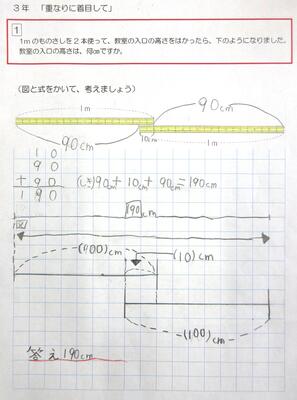 3年「重なりに着目して」
1
1mのものさしを2本使って、教室の入口の高さをはかったら、下のようになりました。
教室の入口の高さは、何cmですか。
(図と式をかいて、考えましょう)
1m
90cm
90cm
10cm
1m
10
90
+90
190
(しき)90cm+10cm+90cm=190cm
190cm
図
(100)cm
(10)cm
(100)cm
答え190cm